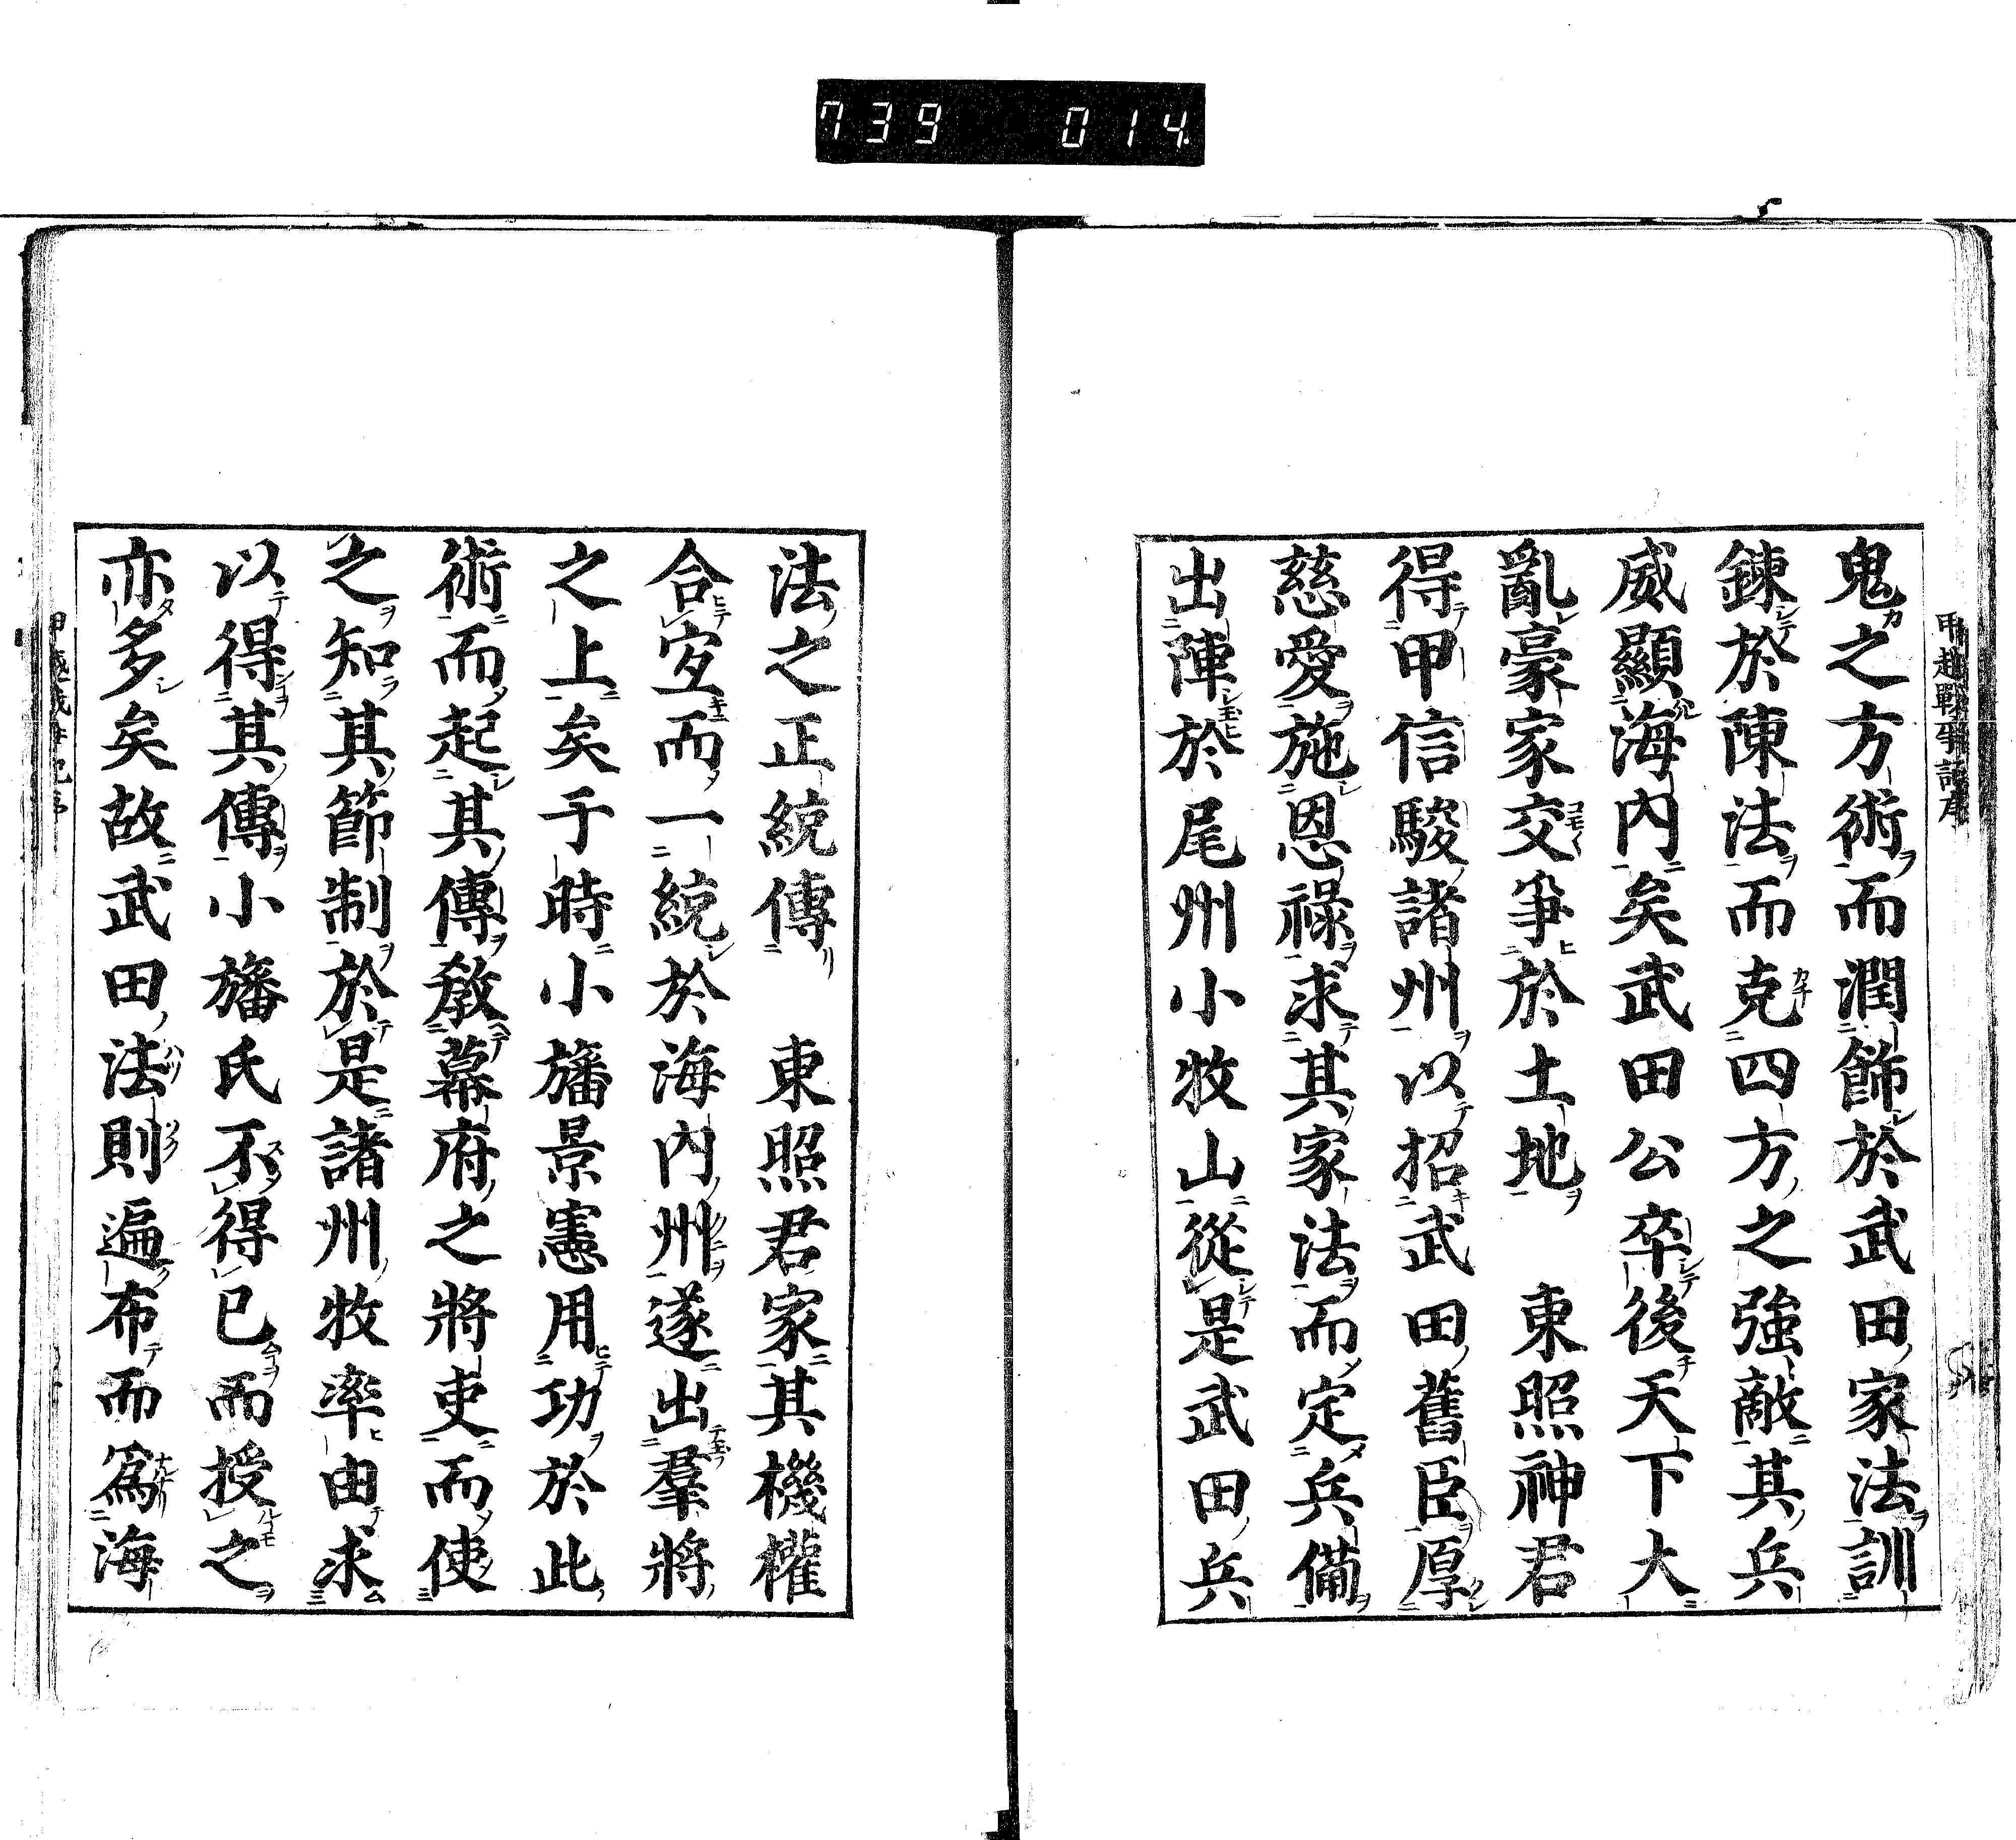 739 014
甲越戰爭記序
鬼之方術而潤飾於武田家法訓
鍊於陳法而克四方之強敵其兵
威顯海内矣武田公卒後天下大
亂豪家交爭於土地　東照神君
得甲信駿諸州以招武田舊臣厚
慈愛施恩祿求其家法而定兵備
出陣於尾州小牧山從是武田兵
法之正統傳　東照君家其機權
合宜而一統於海内州遂出羣將
之上矣于時小旛景憲用功於此
術而起其傳敎幕府之將吏而使
之知其節制於是諸州牧率由求
以得其傳小旛氏不得已而授之
亦多矣故武田法則遍布而爲海